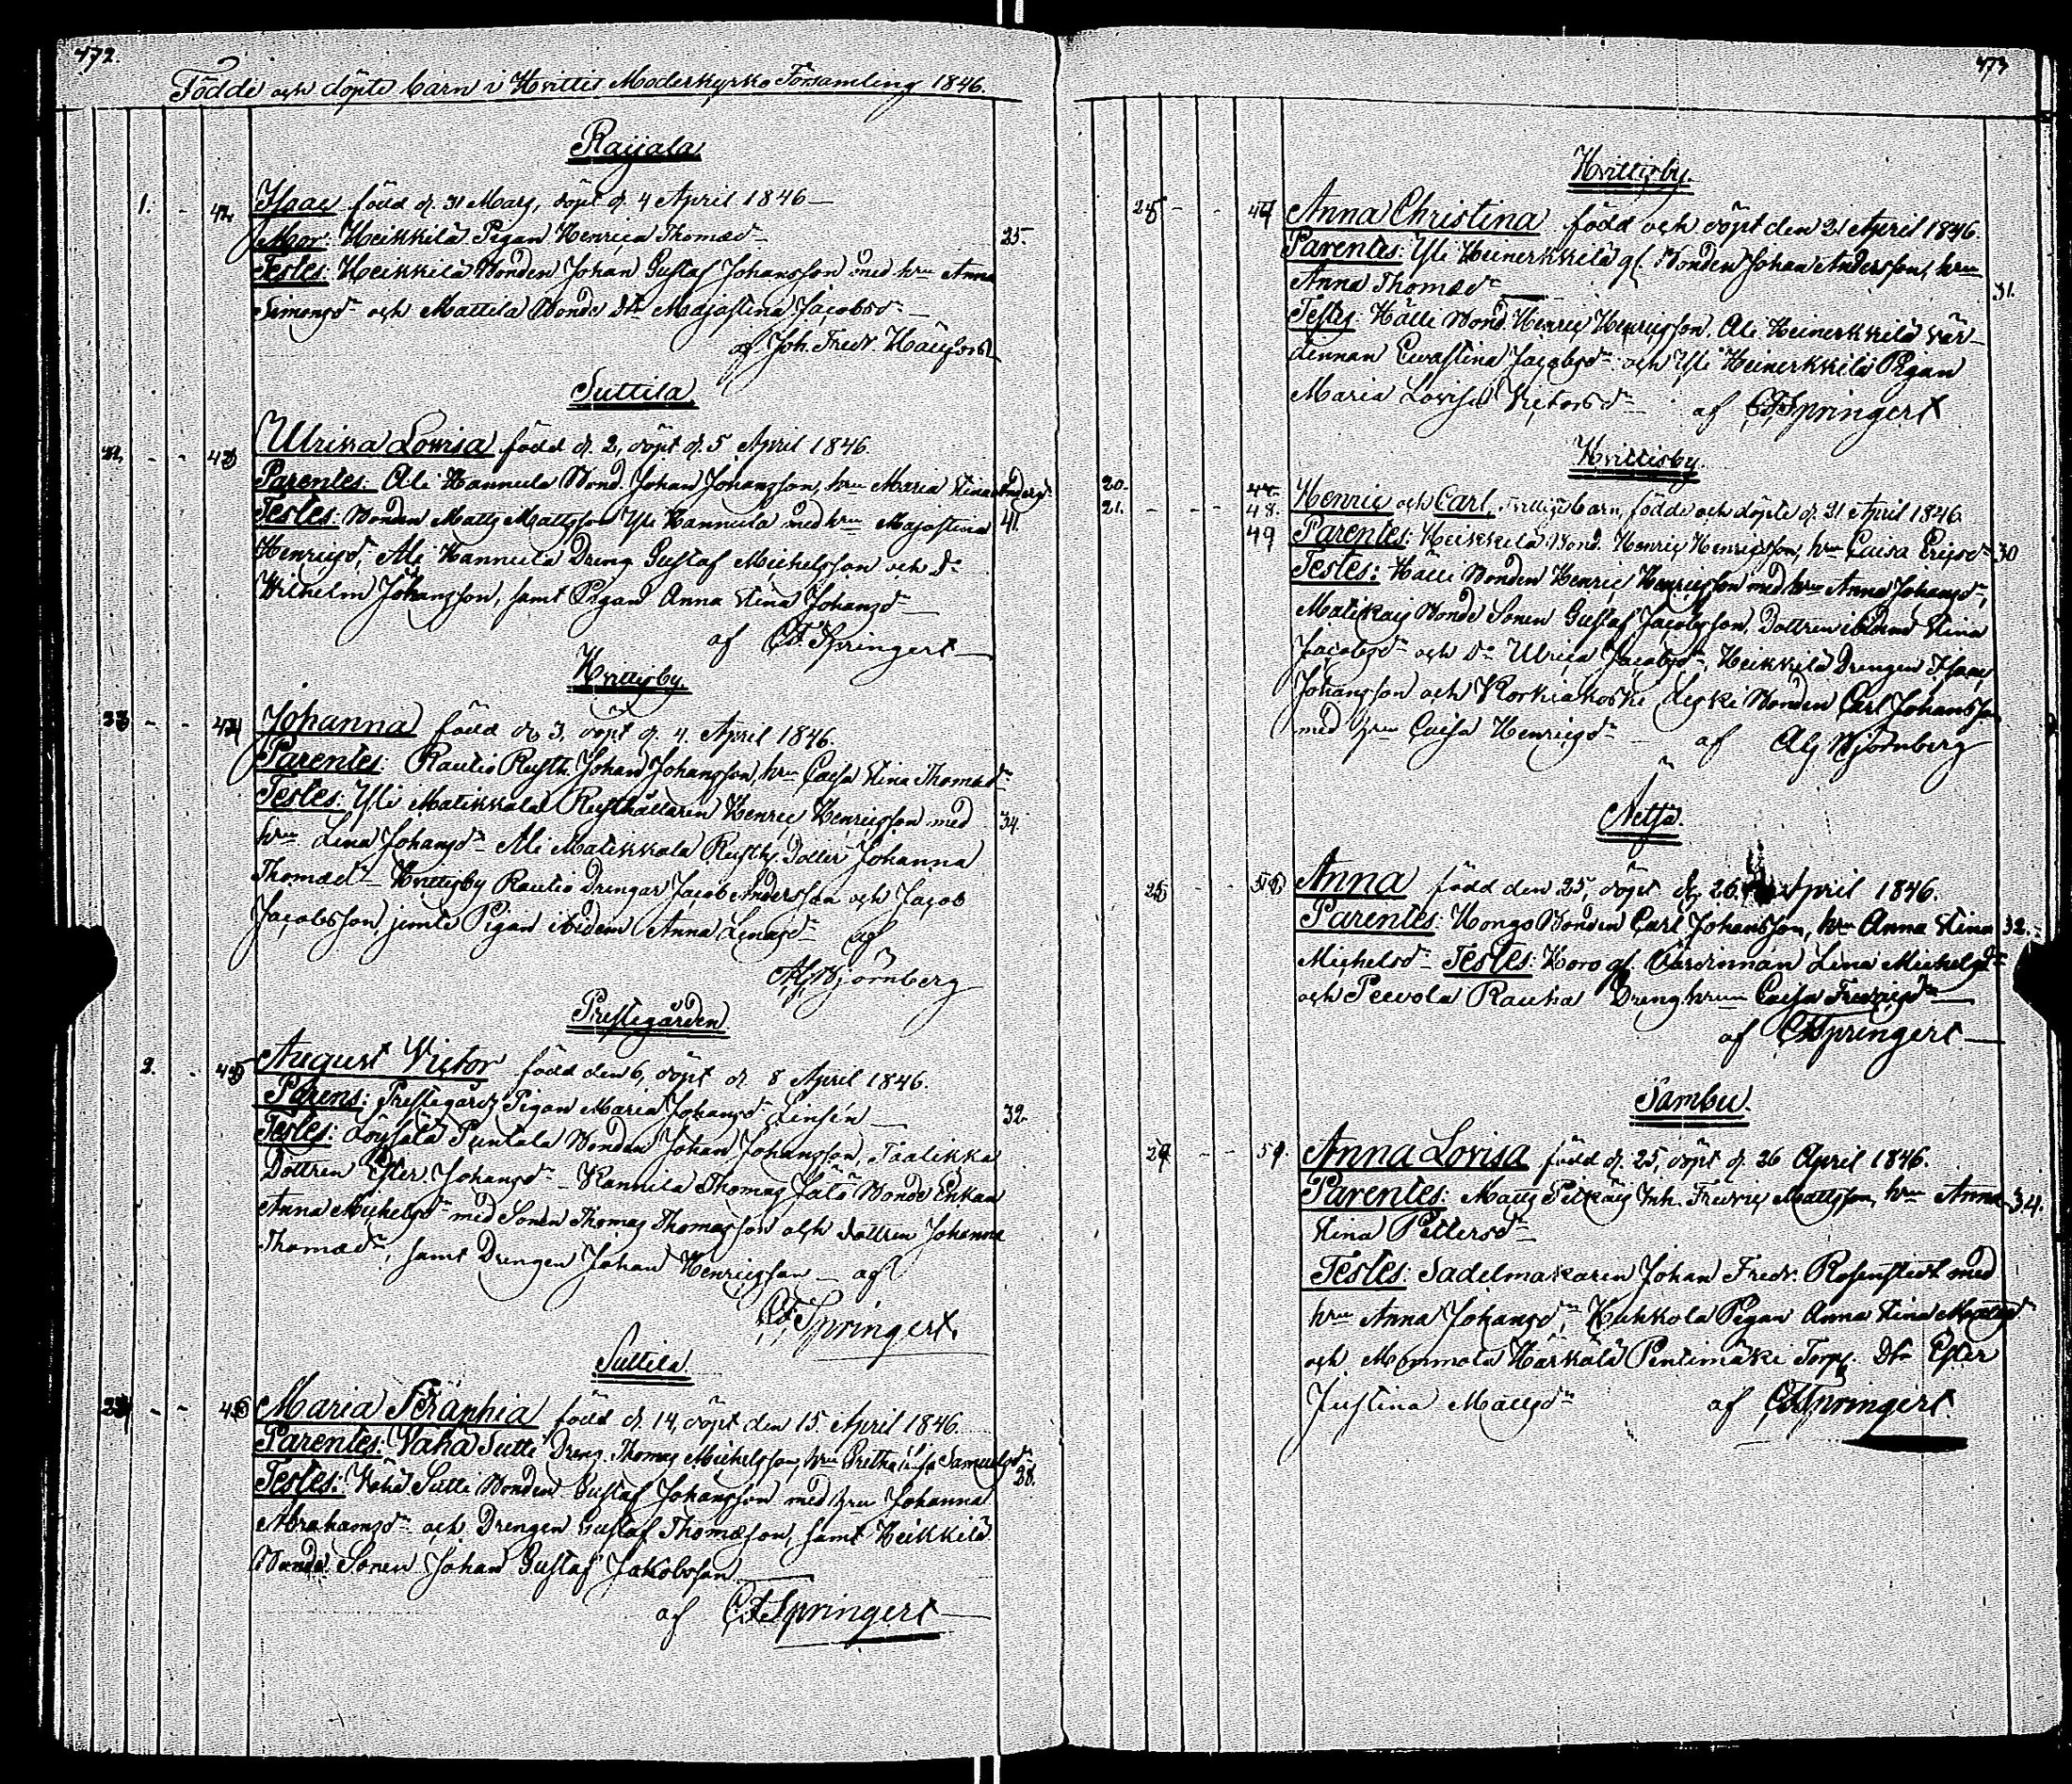 472.
Födde och döpte barn i Hvittis Moderkyrko Församling 1846.
Raijala
1. - 42 Isaac född d. 31 Mars, döpt d. 4 April 1846 —
Mor: Heikkilä Pigan Henrica Thomæd:r 25.
Testes: Heikkilä Bonden Johan Gustaf Johansson med hru Anna
Simonsd:r och Mattila Bonde dtr Majastina Jacobsd:r —
af Joh. Fredr.
Suttila
22. - - 43 Ulrika Lovisa född d. 2, döpt d. 5 April 1846.
Parentes: Ali Hannula Bond. Johan Johansson, hru Maria Stina Andersd:r
Testes: Bonden Matts Mattsson Yli Hannula med hru Majastina 41.
Henricsd:r, Ali Hannula Dreng Gustaf Michelsson och d:o
Wilhelm Johansson, samt Pigan Anna Stina Johansd:r —
af CF Springert —
Hvittisby.
23 - - 44 Johanna född d. 3. döpt d. 4. April 1846.
Parentes: Rautio Rusth. Johan Johansson, hru Caisa Stina Thomæd:r
Testes: Yli Matikkala Rusthållaren Henric Henricsson med 34.
hru Lina Johansd:r Ali Matikkala Rusth. Dotter Johanna
Thomæd:r — Hvittisby Rautio Drengar Jacob Andersson och Jacob
Jacobsson, jemte Pigan ibidem Anna Lenasd:r af
Björnberg
Prestegården
2. - 45 August Victor född den 6, döpt d. 8 April 1846.
Parens: Prestegårds Pigan Maria Johansd:r Linsén — 32.
Testes: Löysälä Puntala Bonden Johan Johansson, Taalikka
Dottren Ester Johansd:r — Kannila Thomas Jalo Bonde Enkan
Anna Michelsd:r med Sonen Thomas Thomasson och dottren Johanna
Thomæd:r, samt Drengen Johan Henricsson — af
CF Springert.
Suttila
24 - - 46 Maria Seraphia född d. 14, döpt den 15. April 1846.
Parentes: Vähä Sutti Dreng Thomas Michelsson, hru Gretha Lisa Samuelsd:r
Testes: Vähä Sutti Bonden Gustaf Johansson med hru Johanna 28.
Abrahamsd:r och Drengen Gustaf Thomæson, samt Heikkilä
Bonde Sonen Johan Gustaf Jakobsson —
af CF Springert —
473
Hvittisby.
25 - - 47 Anna Christina född och döpt den 21 April 1846.
Parentes: Yli Heinerkkilä gl. Bonden Johan Andersson, hru
Anna Thomæd:r 31.
Testes: Hälli Bond. Henric Henricsson, Ali Heinerkkilä vär-
dinnan Evastina Jacobsd:r och Yli Heinerkkilä Pigan
Maria Lovisa Victorsd:r — af CF Springert
Hvittisby.
20. 21. - - - 48. 49 Henric och Carl, Tvillingebarn, födde och döpte d. 21 April 1846
Parentes: Heikkilä Bond. Henric Henricsson, hru Caisa Ericsd:r 30
Testes: Hälli Bonden Henric Henricsson med hru Anna Johansd:r,
Matikais Bonde Sonen Gustaf Jacobsson, Dottren ibidem Stina
Jacobsd:r och d:o Ulrica Jacobsd:r, Heikkilä Drengen Isaac
Johansson och Korkiakoski Bonden Carl Johansson
med hru Caisa Henricsd:r — af Björnberg
50 Anna född den 25, döpt d. 26. April 1846.
Parentes: Hongo Bonden Carl Johansson, hru Anna Stina 32.
Michelsd:r Testes: Horo gl. Värdinnan Lena Michelsd:r
och Peevola Rauha Dreng hrun Caisa Fredricsd:r —
af CF Springert —
Sambu.
29 - - 51. Anna Lovisa född d. 25, döpt d. 26 April 1846.
Parentes: Matts Pitkäis Inh. Fredric Mattsson, hru Anna 34.
Stina Pettersd:r
Testes: Sadelmakaren Johan Fredr. Rosenstedt med
hru Anna Johansd:r, Huhkola Pigan Anna Stina Mattsd:r
och Mommola Härkälä Pentimäki Torp. Dtr Ester
Justina Mattsd:r af CF Springert.